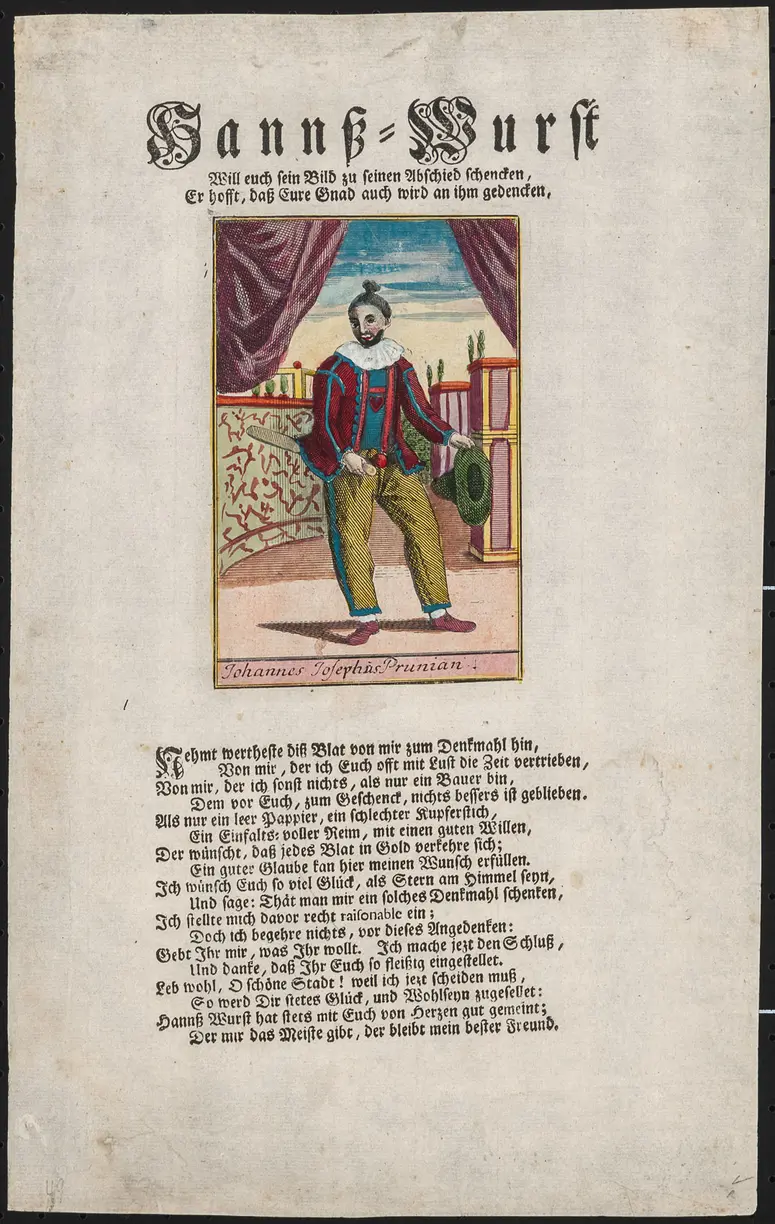 Hannß-Wurst
Will euch sein Bild zu seinen Abschied schencken,
Er hofft, daß Eure Gnad auch wird an ihm gedencken,
Johannes Josephûs Prunian.
Nehmt wertheste diß Blat von mir zum Denkmahl hin,
Von mir, der ich Euch offt mit Lust die Zeit vertrieben,
Von mir, der ich sonst nichts, als nur ein Bauer bin,
Dem vor Euch, zum Geschenck, nichts bessers ist geblieben.
Als nur ein leer Pappier, ein schlechter Kupferstich,
Ein Einfalts-voller Reim, mit einen guten Willen,
Der wünscht, daß jedes Blat in Gold verkehre sich;
Ein guter Glaube kan hier meinen Wunsch erfüllen.
Ich wünsch Euch so viel Glück, als Stern am Himmel seyn,
Und sage: Thät man mir ein solches Denkmahl schenken,
Ich stellte mich davor recht raisonable ein;
Doch ich begehre nichts, vor dieses Angedenken:
Gebt Ihr mir, was Ihr wollt. Ich mache jezt den Schluß,
Und danke, daß Ihr Euch so fleißig eingestellet.
Leb wohl, O schöne Stadt! weil ich jezt scheiden muß,
So werd Dir stetes Glück, und Wohlseyn zugesellet:
Hannß Wurst hat stets mit Euch von Herzen gut gemeint;
Der mir das Meiste gibt, der bleibt mein bester Freund.